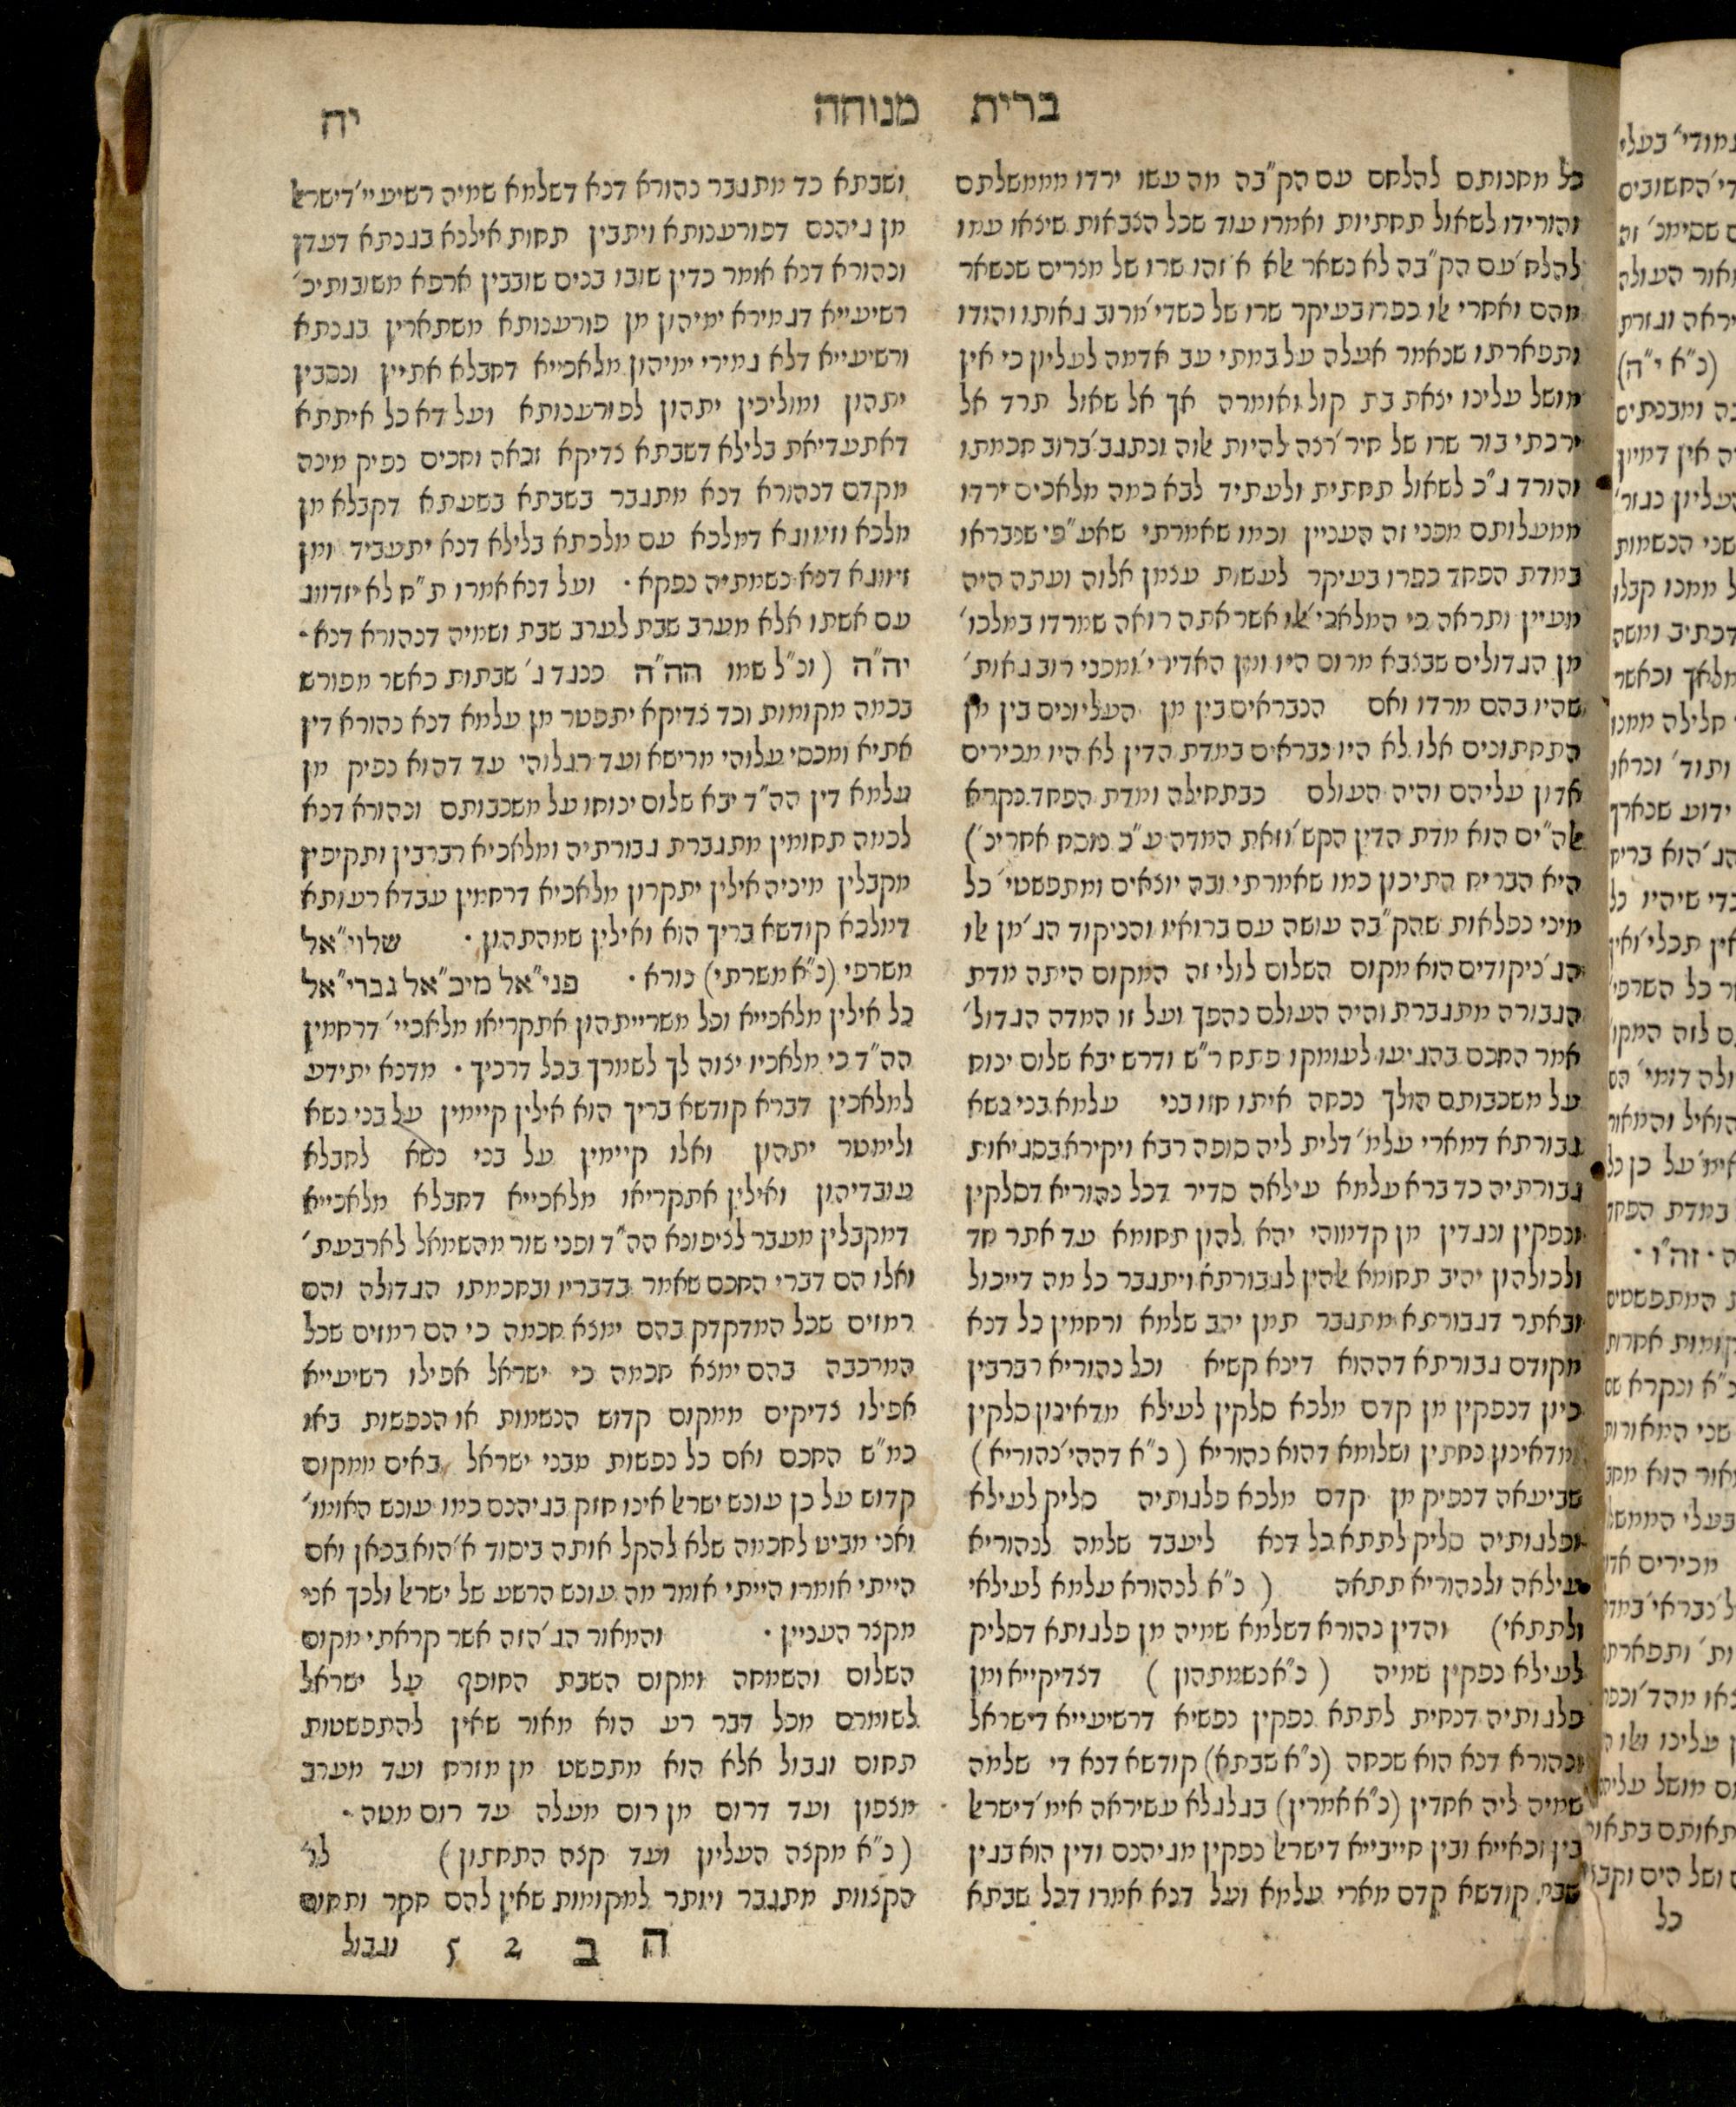 ברית מנוחה יח
כל מחנותם להלחם עם הק"בה מה עשו ירדו מממשלתם
והורידו לשאול תחתיות ואמרו עוד שכל הצבאות שיצאו עמו
להלח' עם הק"בה לא נשאר אלא א' זהו שרו של מצרים שנשאר
מהם ואחרי אלו כפרו בעיקר שרו של כשדי' מרוב גאותו והודו
ותפארתו שנאמר אעלה על במתי עב אדמה לעליון כי אין
מושל עלינו יצאת בת קול ואומרה אך אל שאול תרד אל
ירכתי בור שרו של חיר' רצה להיות אלוה ונתגב' ברוב חכמתו
והורד ג"כ לשאול תחתית ולעתיד לבא כמה מלאכים ירדו
ממעלותם מפני זה העניין וכמו שאמרתי שאע"פי שנבראו
במדת הפחד כפרו בעיקר לעשות עצמן אלוה ועתה היה
מעיין ותראה כי המלאכי' אלו אשר אתה רואה שמרדו במלכו'
מן הגדולים שבצבא מרום היו ומן האדירי' ומפני רוב גאות'
שהיו בהם מרדו ואם הנבראים בין מן העליונים בין מן
התחתונים אלו לא היו נבראים במדת הדין לא היו מכירים
אדון עליהם והיה העולם כבתחילה ומדת הפחד נקרא
אלה"ים הוא מדת הדין הקש' וזאת המדה ע"כ מנסח אחרינ')
היא הבריח התיכון כמו שאמרתי ובה יוצאים ומתפשטי' כל
מיני נפלאות שהק"בה עושה עם ברואיו והניקוד הג' מן אלו
הג' ניקודים הוא מקום השלום לולי זה המקום היתה מדת
הגבורה מתגברת והיה העולם נהפך ועל זו המדה הגדול'
אמר החכם בהגיעו לעומקו פתח ר"ש ודרש יבא שלום ינוח
על משכבותם הולך נכחה איתו חזו בני עלמא בני נשא
גבורתא דמארי עלמ' דלית ליה סופה רבא ויקירא בסגיאות
גבורתיה כד ברא עלמא עילאה סדיר דכל נהוריא דסלקין
ונפקין ונגדין מן קדמוהי יהא להון תחומא עד אתר חד
ולכולהון יהיב תחומא אלהין לגבורתא ויתגבר כל מה דייכול
ובאתר דגבורתא מתגבר תמן יהב שלמא ורחמין כל דנא
מקודם גבורתא דההוא דינא קשיא וכל נהוריא רברבין
כיון דנפקין מן קדם מלכא סלקין לעילא מדאינון סלקין
ומדאינון נחתין ושלומא דהוא נהוריא (נ"א דההי' נהוריא)
שביעאה דנפיק מן קדם מלכא פלגותיה סליק לעילא
ופלגותיה סליק לתתא כל דנא ליעבד שלמה לנהוריא
עילאה ולנהוריא תתאה (נ"א לנהורא עלמא לעילאי
ולתתאי) והדין נהורא דשלמא שמיה מן פלגותא דסליק
לעילא נפקין שמיה (נ"א נשמתהון) דצדיקייא ומן
פלגותיה דנחית לתתא נפקין נפשיא דרשיעייא דישראל
ונהורא דנא הוא שכחה (נ"א שבתא) קודשא דנא די שלמה
שמיה ליה אחדין (נ"א אמרין) בגלגלא עשיראה אימ' דישראל
בין זכאייא ובין חייבייא דישראל נפקין מגיהנם ודין הוא בגין
שבת קודשא קדם מארי עלמא ועל דנא אמרו דבל שבתא
ושבתא כד מתגבר נהורא דנא דשלמא שמיה רשיעיי' דישראל
מן גיהנם דפורענותא ויתבין תחות אילנא בגנתא דעדן
ונהורא דנא אומר כדין שובו בנים שובבין ארפא משובותיכ'
רשיעייא דגמירא ימיהון מן פורענותא משתארין בגנתא
ורשיעייא דלא גמירי ימיהון מלאכייא דחבלא אתיין ונסבין
יתהון ומוליכין יתהון לפורענותא ועל דא כל איתתא
דאתעדיאת בלילא דשבתא צדיקא זכאה וחכים נפיק מינה
מקדם דנהורא דנא מתגבר בשבתא בשעתא דקבלא מן
מלכא וזיווגא דמלכא עם מלכתא בלילא דנא יתעביד ומן
זיווגא דנא נשמתיה נפקא · ועל דנא אמרו ת"ח לא יזדווג
עם אשתו אלא מערב שבת לערב שבת ושמיה דנהורא דנא ·
יה"ה (וכ"ל שמו הה"ה כנגד ג' שבתות כאשר מפורש
בכמה מקומות וכד צדיקא יתפטר מן עלמא דנא נהורא דין
אתיא ומכסי עלוהי מרישא ועד רגלוהי עד דהוא נפיק מן
עלמא דין הה"ד יבא שלום ינוחו על משכבותם ונהורא דנא
לכמה תחומין מתגברת גבורתיה ומלאכיא רברבין ותקיפין
מקבלין מיניה אילין יתקרון מלאכיא דרחמין עבדא רעותא
דמלכא קודשא בריך הוא ואילין שמהתהון · שלוי"אל
משרפי (נ"א משרתי) נורא · פני"אל מיכ"אל גברי"אל
כל אילין מלאכייא וכל משרייתהון אתקריאו מלאכיי' דרחמין
הה"ד כי מלאכיו יצוה לך לשמרך בכל דרכיך · מדנא יתידע
למלאכין דברא קודשא בריך הוא אילין קיימין על בני נשא
ולימטר יתהון ואלו קיימין על בני נשא לחבלא
עובדיהון ואילין אתקריאו מלאכייא דחבלא מלאכייא
דמקבלין מעבר לציפונא הה"ד ופני שור מהשמאל לארבעת'
ואלו הם דברי החכם שאמר בדבריו ובחכמתו הגדולה והם
רמזים שכל המדקדק בהם ימצא חכמה כי הם רמזים שכל
המרכבה בהם ימצא חכמה כי ישראל אפילו רשיעייא
אפילו צדיקים ממקום קדוש הנשמות או הנפשות באו
כמ"ש החכם ואם כל נפשות מבני ישראל באים ממקום
קדוש על כן עונש ישראל אינו חזק בגיהנם כמו עונש האומו'
ואני מביט לחכמה שלא להקל אותה ביסוד א' הוא בכאן ואם
הייתי אומרו הייתי אומר מה עונש הרשע של ישראל ולכך אני
מקצר העניין · והמאור הג' הזה אשר קראתי מקום
השלום והשמחה ומקום השבת החופף על ישראל
לשומרם מכל דבר רע הוא מאור שאין להתפשטות
תחום וגבול אלא הוא מתפשט מן מזרח ועד מערב
מצפון ועד דרום מן רום מעלה עד רום מטה ·
(נ"א מקצה העליון ועד קצה התחתון) לו'
הקצוות מתגבר ויותר למקומות שאין להם חקר ותחום
ה ב 2 5 וגבול